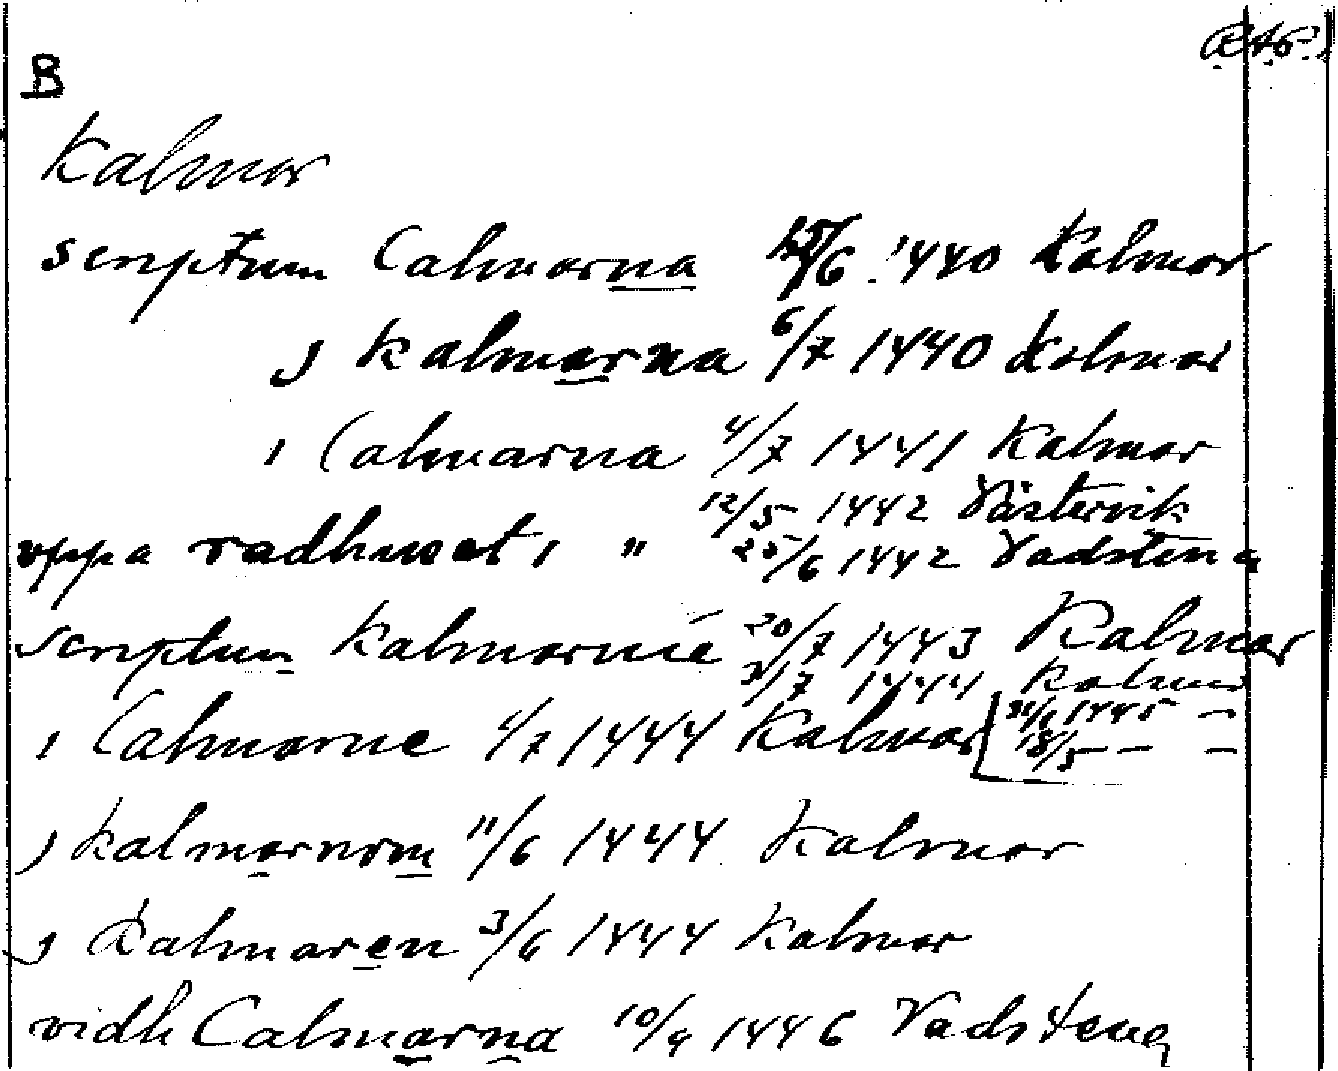 RAp.
B
Kalmar
scriptum Calmarna 15/6 1440 Kalmar
j Kalmarna 6/7 1440 Kalmar
i Calmarna 4/7 1441 Kalmar
12/5 1442 Västervik
uppa radhuset i " 25/6 1442 Vadstena
scriptum Kalmarnie 20/7 1443 Kalmar
3/7 1444 Kalmar
i Calmarne 4/7 1444 Kalmar
1445 –
18/5 – –
j Kalmarnom 11/6 1444 Kalmar
j Kalmaren 3/6 1444 Kalmar
vidh Calmarna 10/9 1446 Vadstena